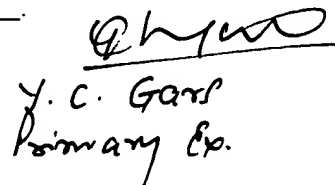 Y. C. Gars
Primary Ex.